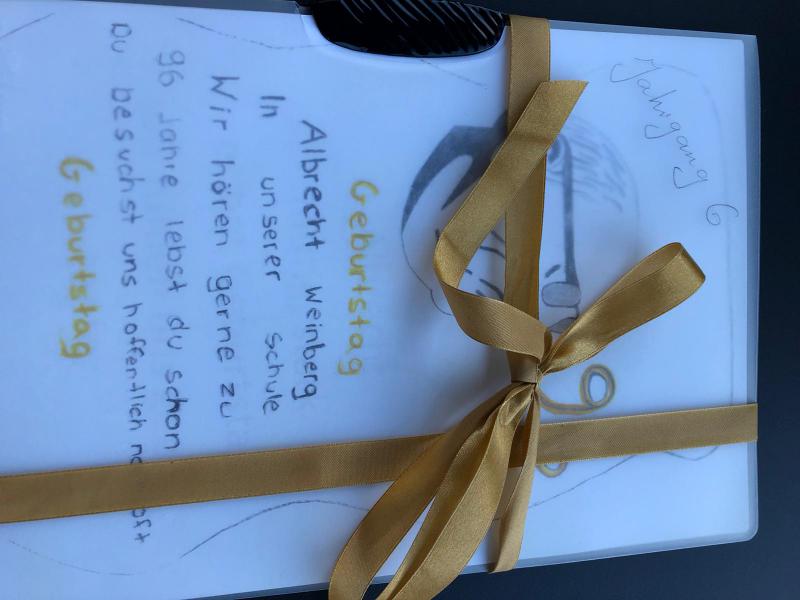 Jahrgang 6
Geburtstag
Albrecht Weinberg
In unserer Schule
Wir hören gerne zu
96 Jahre lebst du schon
Du besuchst uns hoffentlich noch oft
Geburtstag